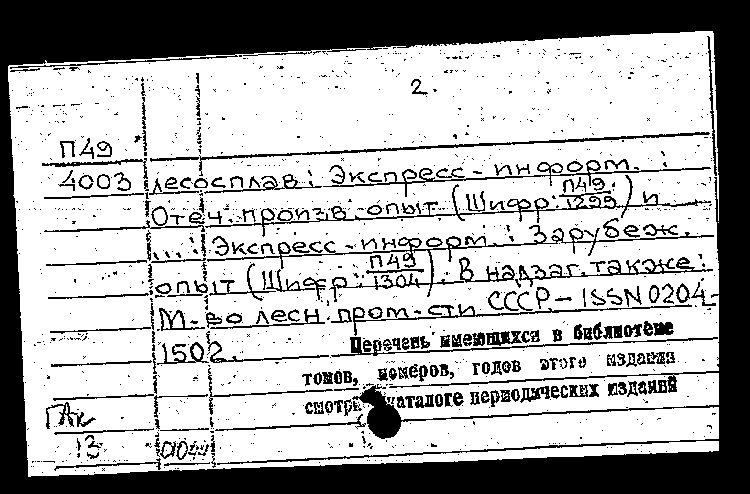 2.
П49
4003 лесосплав: Экспресс-информ. :
Отеч. произв. опыт (Шифр: П49/1299) и
...: Экспресс-информ. : Зарубеж.
опыт (Шифр: П49/1304). В надзаг. также:
М-во лесн. пром-сти СССР. – ISSN 0204-
1502. Перечень имеющихся в библиотеке
томов, номеров, годов этого издания
смотри каталоге периодических изданий
ГАк
13